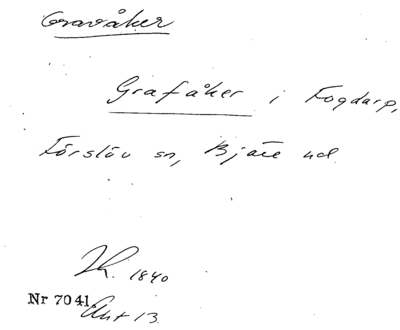 Gravåker
Grafåker i Fogdarp,
Förslöv sn, Bjäre hd
Lh. 1840
Nr 7041
Akt 13.